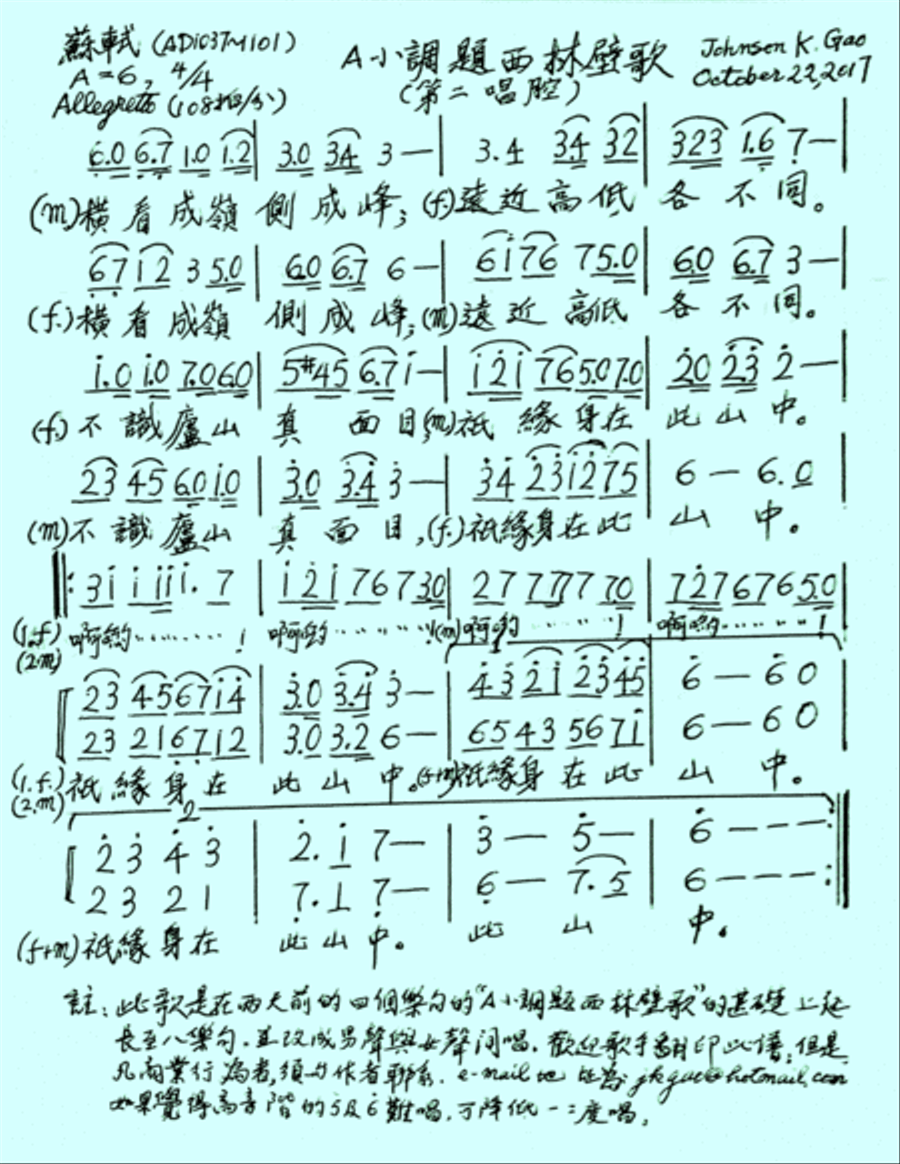 蘇軾 (AD1037~1101)
A=6, 4/4
Allegretto (108拍/分)
A小調題西林壁歌
(第二唱腔)
Johnsen K. Gao
October 22, 2017
6.0 6.7 1.0 1.2 | 3.0 34 3 — | 3.4 34 32 | 323 1.6 7 — |
(m)橫看成嶺側成峰;(f)遠近高低各不同。
67 12 3 5.0 | 6.0 6.7 6 — | 6i76 7 5.0 | 6.0 6.7 3 — |
(f.)橫看成嶺側成峰;(m)遠近高低各不同。
i.0 i.0 7.0 6.0 | 5#45 6.7 i — | i2i 76 5.0 7.0 | 2.0 2.3 2 — |
(f.)不識廬山真面目,(m)祇緣身在此山中。
23 45 6.0 i.0 | 3.0 3.4 3 — | 34 23 i2 75 | 6 — 6.0 |
(m)不識廬山真面目,(f.)祇緣身在此山中。
‖: 3i i iii. 7 | i2i 767 30 | 27 7777 70 | 727676 50 |
(1.f.) (2.m) 啊喲……! 啊喲……! (m)啊喲……! 啊喲……!
1
23 45 67 i4 | 3.0 3.4 3 — | 43 2i 23 45 | 6 — 6 0
23 21 67 12 | 3.0 3.2 6 — | 65 43 56 7i | 6 — 6 0
(1.f.) (2.m) 祇緣身在此山中。(f+m)祇緣身在此山中。
2
2 3 4 3 | 2. i 7 — | 3 — 5 — | 6 — — — :‖
2 3 2 1 | 7. 1 7 — | 6 — 7. 5 | 6 — — — :‖
(f+m)祇緣身在此山中。此山中。
註:此歌是在兩天前的四個樂句的"A小調題西林壁歌"的基礎上延
長至八樂句,並改成男聲與女聲間唱。歡迎歌手翻印此譜;但是
凡商業行為者,須與作者聯系. e-mail 為: jkgao@hotmail.com
如果覺得高音階的5及6難唱,可降低一二度唱。